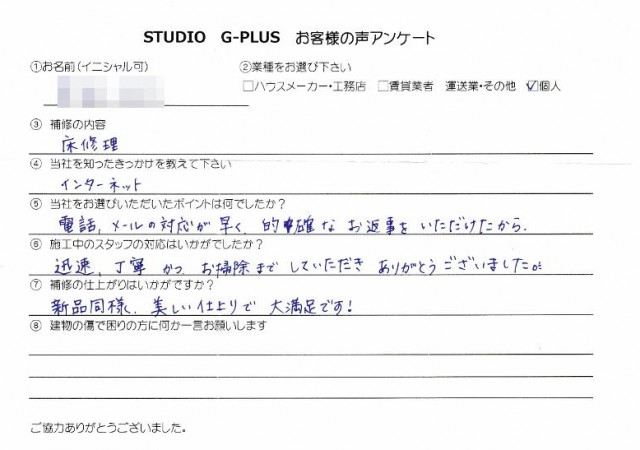 STUDIO G-PLUS お客様の声アンケート
①お名前(イニシャル可) ②業種をお選び下さい
□ハウスメーカー・工務店 □賃貸業者 運送業・その他 ☑個人
③ 補修の内容
床修理
④ 当社を知ったきっかけを教えて下さい
インターネット
⑤ 当社をお選びいただいたポイントは何でしたか?
電話、メールの対応が早く、的確なお返事をいただけたから。
⑥ 施工中のスタッフの対応はいかがでしたか?
迅速、丁寧かつ、お掃除までしていただきありがとうございました。
⑦ 補修の仕上がりはいかがですか?
新品同様く、美しい仕上りで大満足です!
⑧ 建物の傷で困りの方に何か一言お願いします
ご協力ありがとうございました。